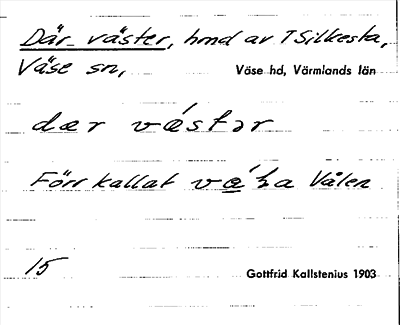 Där väster, hmd av TSilkesta,
Väse sn, Väse hd, Värmlands län
dær vǽstər
Förr kallat Vålen
15 Gottfrid Kallstenius 1903